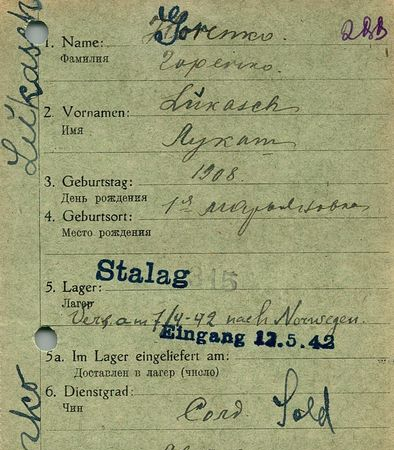 1. Name: Horenko
Фамилия Горенко.
2. Vornamen: Lükasch
Имя Лукаш
3. Geburtstag: 1908.
День рождения
4. Geburtsort:
Место рождения
5. Lager: Stalag 315
Лагер
Vers. am 7/4-42 nach Norwegen.
Eingang 12.5.42
5a. Im Lager eingeliefert am:
Доставлен в лагер (число)
6. Dienstgrad: Sold
Чин
Lükasch